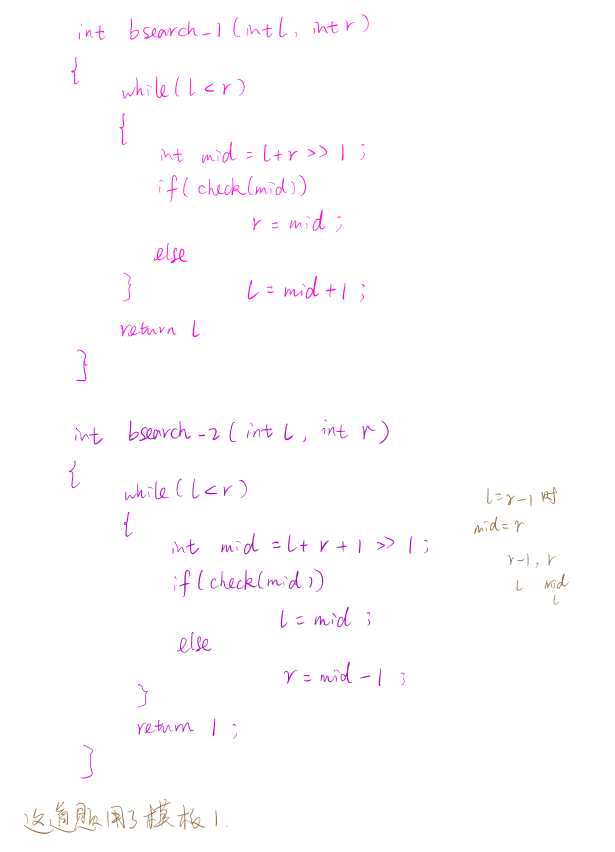 int bsearch-1 (int l, int r)
{
while(l < r)
{
int mid = l+r >> 1 ;
if( check(mid))
r = mid ;
else
} l = mid+1 ;
return l
}
int bsearch-2 ( int l , int r )
{
while(l<r)
{
int mid = l+ r + 1 >> 1 ;
if(check(mid))
l = mid ;
else
r = mid - 1 ;
}
return l ;
}
l=r-1 时
mid=r
r-1, r
l mid
l
这道题用了模板1.